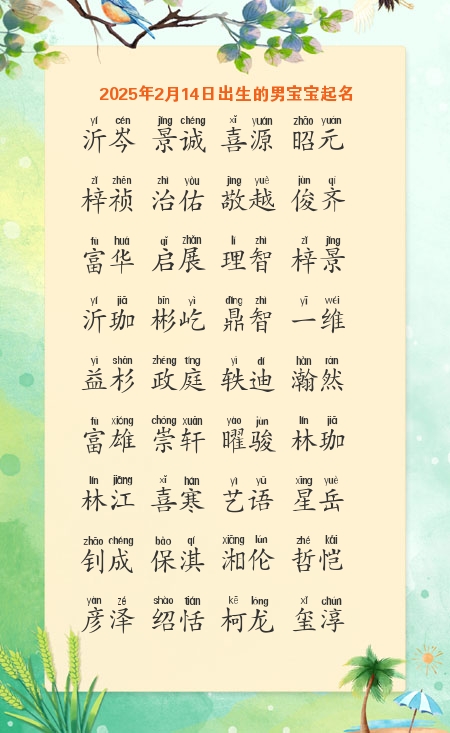 2025年2月14日出生的男宝宝起名
yí cén jǐng chéng xǐ yuán zhāo yuán
沂岑 景诚 喜源 昭元
zǐ zhēn zhì yòu jìng yuè jùn qí
梓祯 治佑 敬越 俊齐
fù huá qǐ zhǎn lǐ zhì zǐ jǐng
富华 启展 理智 梓景
yí jiā bīn yì dǐng zhì yī wéi
沂珈 彬屹 鼎智 一维
yì shān zhèng tíng yì dí hàn rán
益杉 政庭 轶迪 瀚然
fù xióng chóng xuān yào jùn lín jiā
富雄 崇轩 曜骏 林珈
lín jiāng xǐ hán yì yǔ xīng yuè
林江 喜寒 艺语 星岳
zhāo chéng bǎo qí xiāng lún zhé kǎi
钊成 保淇 湘伦 哲恺
yàn zé shào tián kē lóng xǐ chún
彦泽 绍恬 柯龙 玺淳